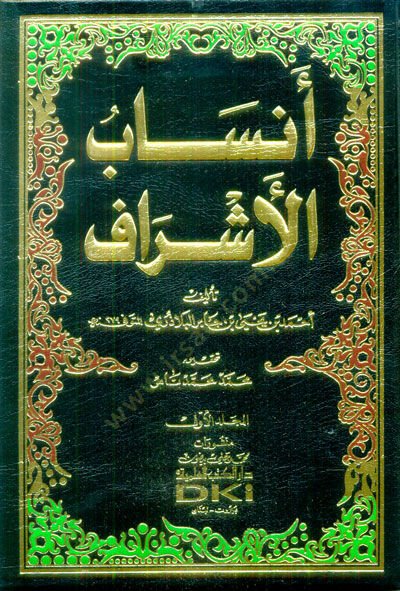 أنسَابُ
الأشْرَاف
تأليف
أحمد بن يحيى بن جابر البلاذري المتوفى ٢٧٩ هـ
تحقيق
محمد محمد تامر
المجلد الأول
منشورات
محمد علي بيضون
دار الكتب العلمية
DKi
بيروت - لبنان